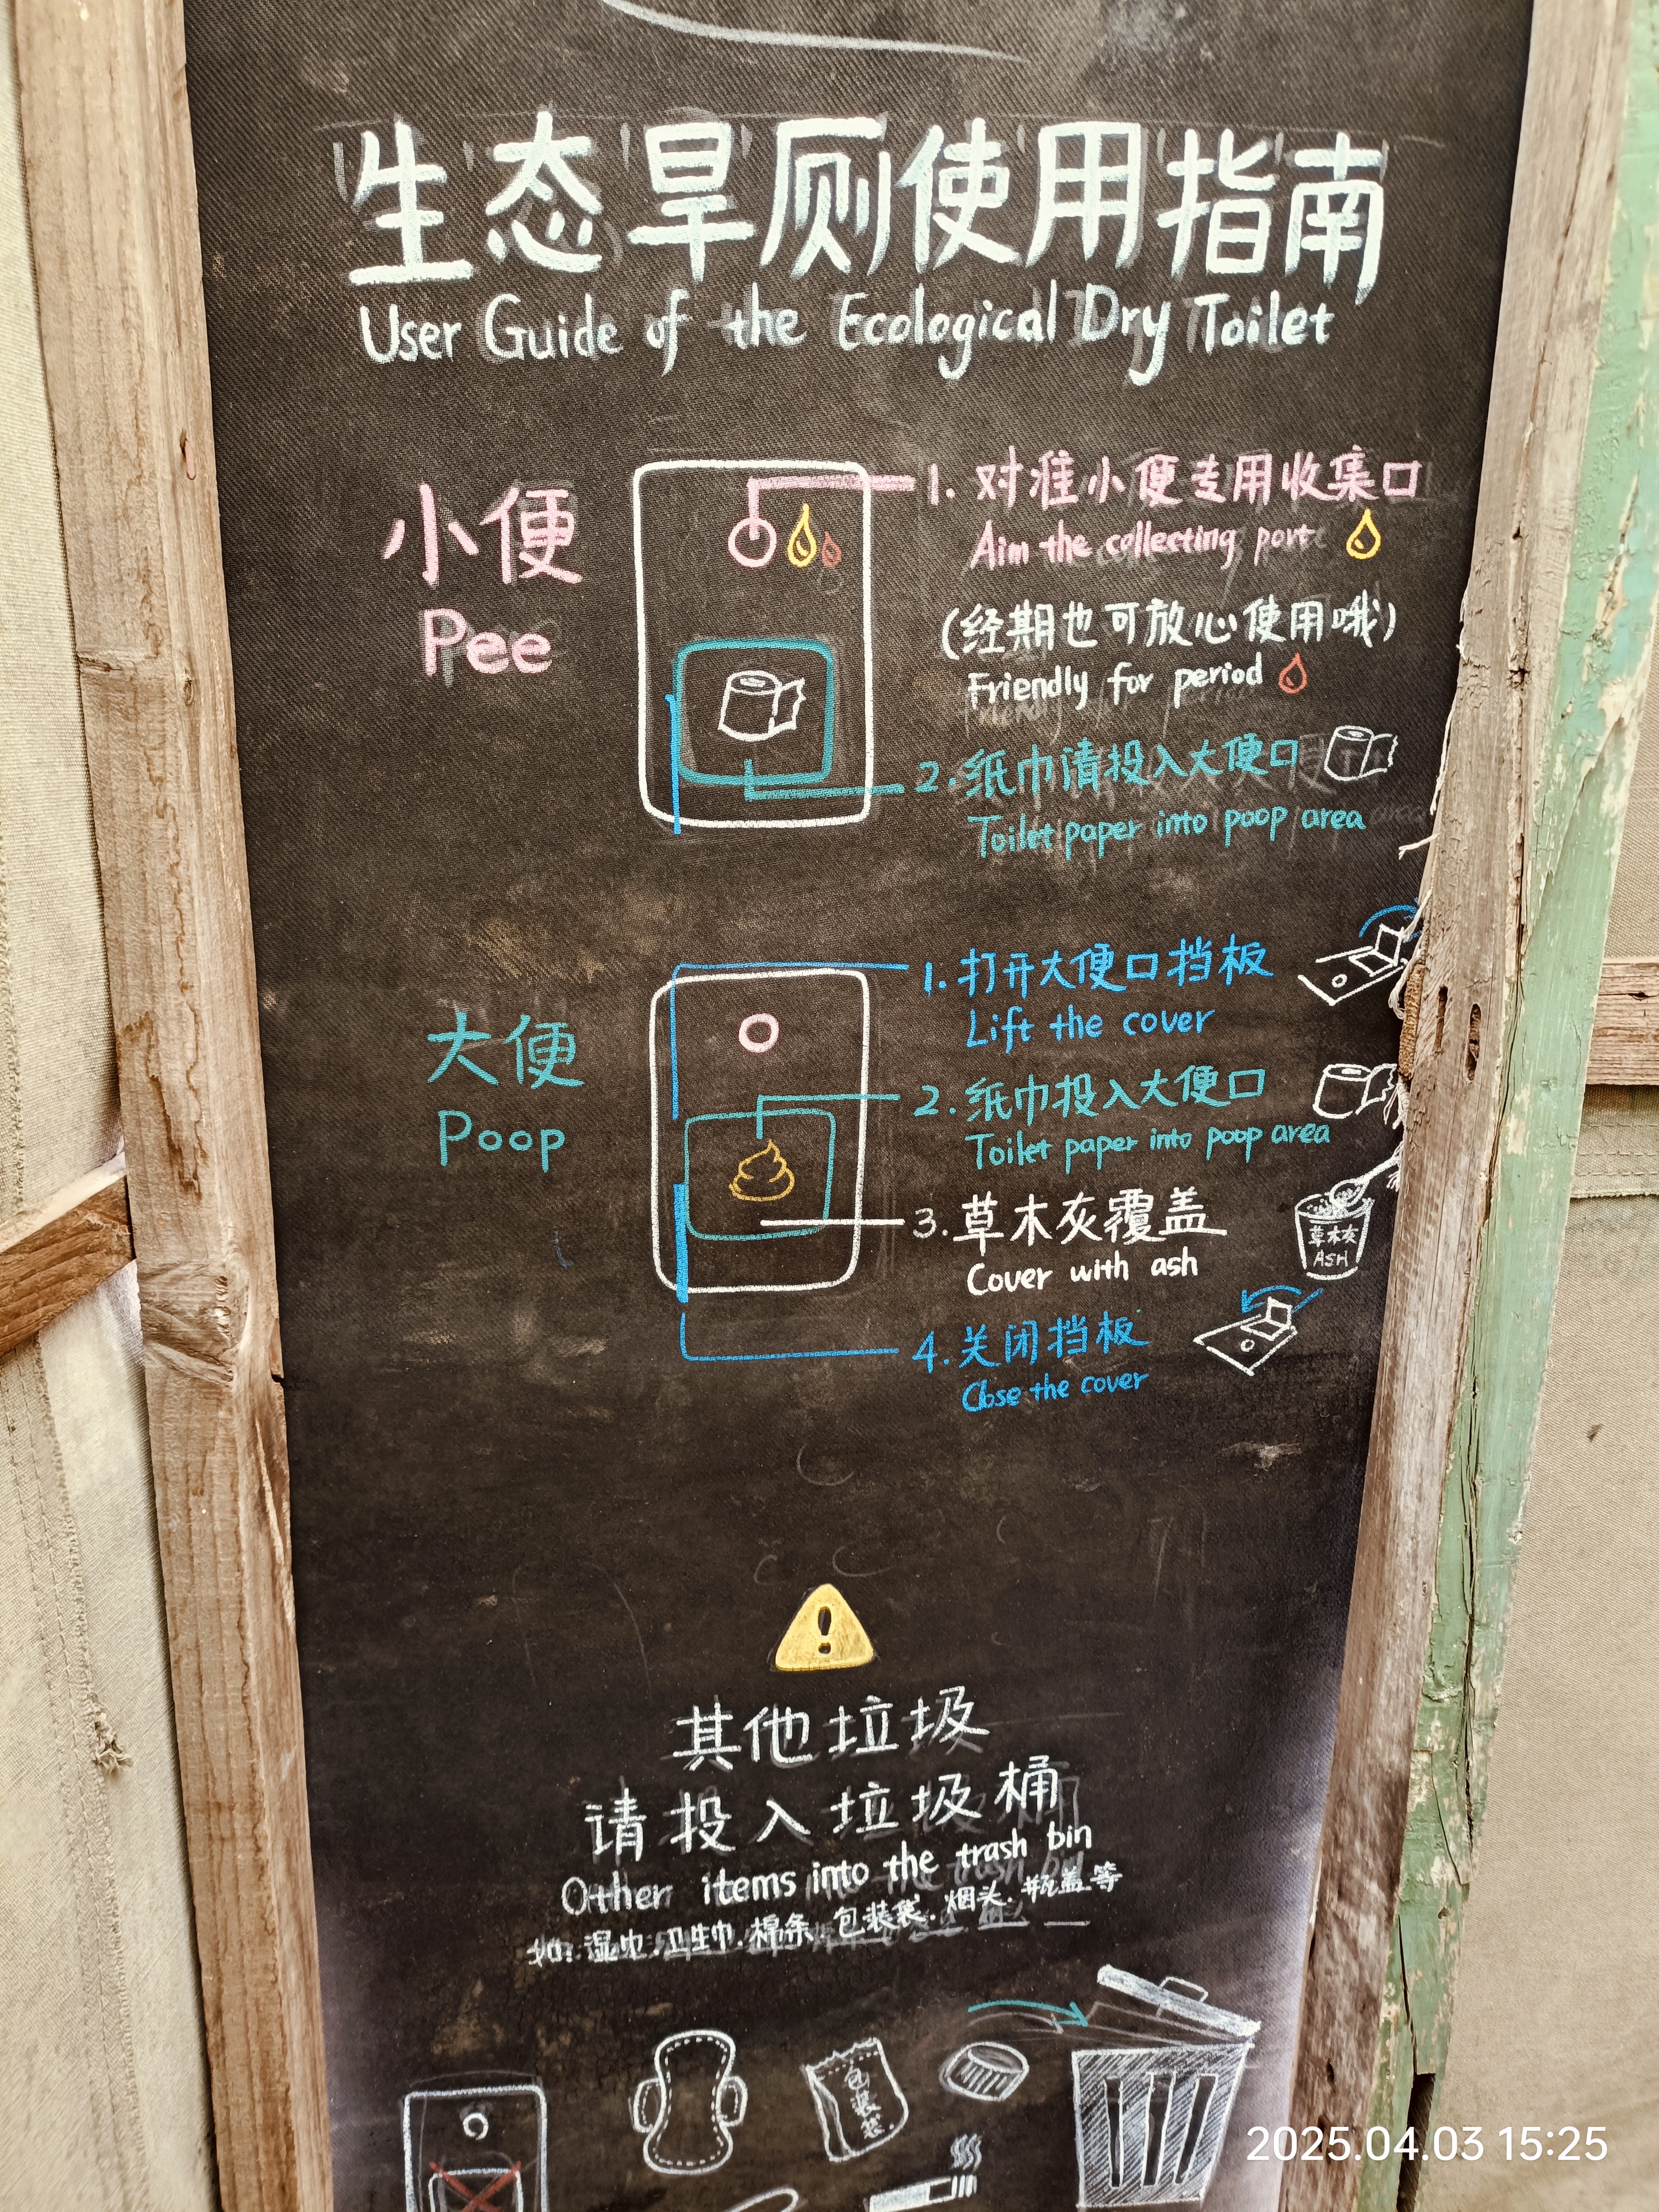 生态旱厕使用指南
User Guide of the Ecological Dry Toilet
小便
Pee
1. 对准小便专用收集口
Aim the collecting port
(经期也可放心使用哦)
Friendly for period
2. 纸巾请投入大便口
Toilet paper into poop area
大便
Poop
1. 打开大便口挡板
Lift the cover
2. 纸巾投入大便口
Toilet paper into poop area
3. 草木灰覆盖
Cover with ash
草木灰
ASH
4. 关闭挡板
Close the cover
!
其他垃圾
请投入垃圾桶
Other items into the trash bin
如: 湿巾.卫生巾.棉条.包装袋.烟头.瓶盖等
包装袋
2025.04.03 15:25